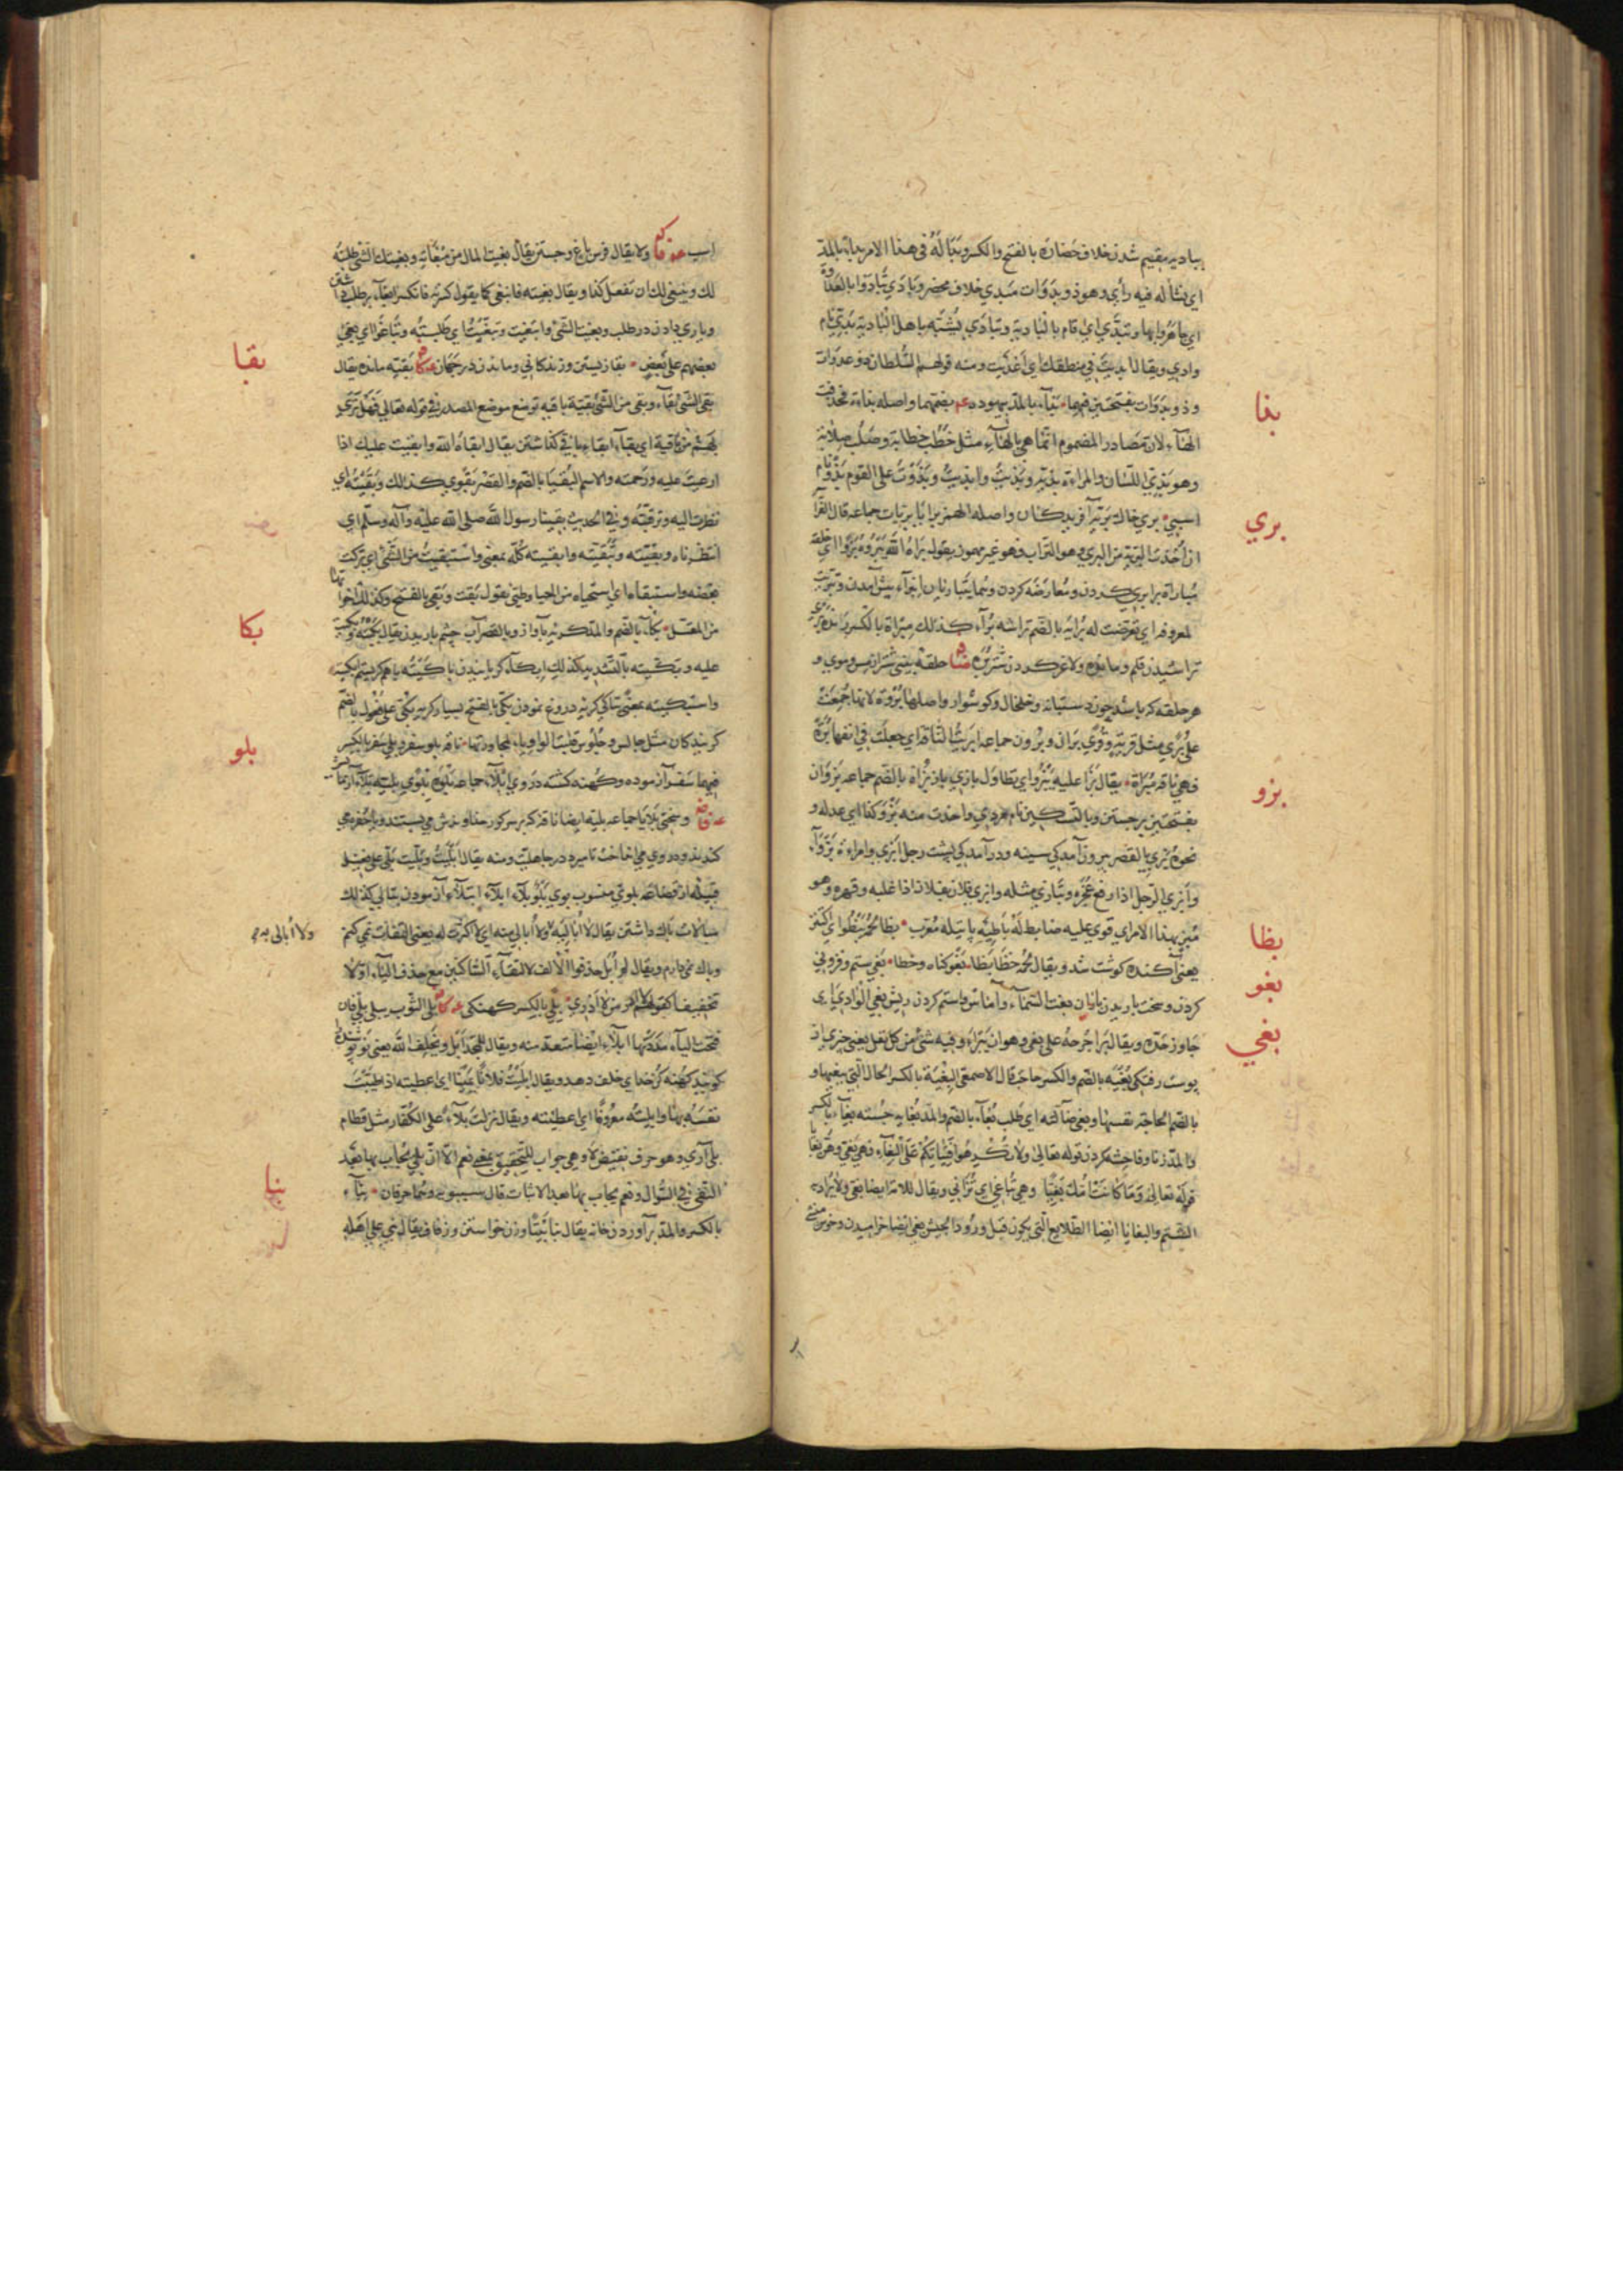 بباديه مقيم شدن خلاف حضارة بالفتح والكسر وبدا له في هذا الامر بداء بالمد
اي نشأ له فيه رأي وهو ذو بدوات مبدي خلاف محضر وبادي تبادوا بالعداوة
اي جاهروا بها وتبدي اي اقام بالبادية وتبادي تشبه باهل البادية بدي نام
وادي ويقال ابديت في منطقك اي اغديت ومنه قولهم السلطان ذو عدوات
وذو بدوات بفتحتين فيهما بذاء بالمد بيهوده بضمهما واصله بذاءة فحذفت
بذا
الهاء لان مصادر المضموم انما هي بالهاء مثل خطب خطابة وصلب صلابة
وهو بذي اللسان والمراءة بذية وبذيت وابذيت وبذوت على القوم بذوا
بري خاك برية آفريدكان واصله الهمز برايا بريات جماعه قال الفرا
بري
ان اخذت البرية من البري وهو التراب فهو غير مهموز يقوله براه الله يبروه بروا اي خلقه
مباراة برابري كردن ومعارضه كردن وهما يتباريان انبراء پيش آمدن وتبريت
لمعروفه اي تعرضت له براية بالضم تراشه براء كذلك مبراة بالكسر
تراشيدن قلم وما بقوه ولاغر كردن شتر بره حلقه بيني شتر از مس وموي و
هر حلقه كه باشد چون دستيانه وخلخال وكوشوار واصلها بروة لانها جمعت
على برى مثل قرية وقرى براة وبرون جماعه ابريت الناقة اي جعلت في انفها برة
فهي ناقة مبراة يقال بزا عليه يبزوا اي تطاول بازي باز بزاة بالضم جماعه بزوان
بزو
بفتحتين برجستن وبالتسكين نام مردي واخذت منه بزو كذا اي عدله و
نحوه بزي بالقصر بيرون آمدكي سينه ودرآمدكي پشت رجل ابزي وامراءة بزواء
وابزي الرجل اذا رفع عجزه وتبازي مثله وابزي فلان بفلان اذا غلبه وقهره وهو
مبز بهذا الامر اي قوي عليه ضابط له باطية پاتيله معرب بظا لحمه يبظوا اي اكتنز
بظا
يعني آكنده كوشت شد ويقال لحمه خظا بظا بغو كناه وخطا بغي ستم وفزوني
بغو
كردن وسخت باريدن باران بغت السماء وآماس وستم كردن ريش بغي الوادي اي
جاوز حده ويقال برا جرحه على بغي وهو ان يبراء وفيه شئ من نغل يعني چيزي از
بغي
پوست رفتكي بغية بالضم والكسر حاجة قال الاصمعي البغية بالكسر الحال التي يبغيها و
بالضم الحاجة نفسها وبغي ضالته اي طلب بغاء بالضم والمد بغاية جسته بغاء بالكسر
والمد زنا وفاحشه كردن قوله تعالى ولا تكرهوا فتياتكم على البغاء فهي بغي وهن بغايا
قوله تعالى وما كانت امك بغيا وهي تباغي اي تزاني ويقال للامة ايضا بغي ولا يراد به
الشتم والبغايا ايضا الطلايع التي يكون قبل ورود الجيش بغي ايضا خراميدن وخوش منشي
اسب ولا يقال فرس باغ وجستن يقال بغيت المال من مبغاته وبغيتك الشئ طلبته
لك وينبغي لك ان تفعل كذا ويقال بغيته فانبغى كما يقول كسرته فانكسر ابغاء بر طلب داشتن
وياري دادن در طلب وبغيت الشئ وابتغيت وتبغيت اي طلبته وتباغوا اي بغي
بعضهم على بعض بقا زيستن وزندكاني وماندن در جهان بقيه مانده يقال
بقا
بقي الشئ بقاء وبقي من الشئ بقية باقية توضع موضع المصدر في قوله تعالى فهل ترى
لهم من باقية اي بقاء ابقاء باقي كذاشتن يقال ابقاه الله وابقيت عليك اذا
ارعيت عليه ورحمته والاسم البقيا بالضم والقصر بقوي كذلك وبقيته اي
نظرت اليه وترقبته وفي الحديث بقينا رسول الله صلى الله عليه وآله وسلم اي
انتظرناه وبقيته وتبقيته وابقيته كله بمعنى واستبقيت من الشئ اي تركت
بعضه واستبقاه اي استحياه من الحيا وطيئ يقول بقت وبقى بالفتح وكذلك اخواتها
من المعتل بكاء بالضم والمد كريه بآواز وبالقصر آب چشم باريدن يقال بكيته وبكيت
بكا
عليه وبكيته بالتشديد كذلك ابكاء كريانيدن باكيته باهم كريستم فبكيته
واستبكيته بمعنى تباكي كريه دروغ نمودن بكي بالفتح بسيار كريه بكي على فعول بالضم
كريندكان مثل جالس وجلوس قلبت الواو ياء لمجاورتها ناقة بلو سفر وبلي سفر بالكسر
بلو
فيهما سفر آزموده وكهنه كشته در وي ابلاء جماعه بلوة بلوي بلية بلاء آزمايش
وسختي بلايا جماعه بلية ايضا ناقه كه بر سر كور خداوندش مي بستند ويا حفره مي
كندند ودر وي مي انداختند تا ميرد در جاهليت ومنه يقال ابليت وبليت بلي على فعيل
قبيله از قضاعه بلوي منسوب بوي بلو بلاء ابلاء ابتلاء آزمودن تبالي كذلك
مبالات باك داشتن يقال لا اباليه ولا أبالي منه اي لا اكترث له يعني التفات نمي كنم
ولا أبالي به
وباك نمي دارم ويقال لم ابل حذفوا الالف لالتقاء الساكنين مع حذف الياء اولا
تخفيفا كقولهم لا ادر من لا ادري بلي بالكسر كهنكي بلي الثوب يبلى بلي فان
فتحت الباء مددتها ابلاء ايضا متعد منه ويقال للمجد ابل ويخلف الله يعني نو پوش
كويند كهنه كن خداي خلف دهد ويقال ابليت فلانا يمينا اي اعطيته اذا طيبت
نفسه بها وابليته معروفا اي اعطيته ويقال نزلت بلاء على الكفار مثل قطام
بلي آري وهو حرف نقيض لا وهي جواب للتحقيق بمعنى نعم الا ان بلي يجاب بها بعد
النفي في السؤال ونعم يجاب بها بعد الاثبات قال سيبويه وهما حرفان بناء
بنا
بالكسر والمد برآوردن خانه يقال بنا بيتا وزن خواستن وزفاف يقال بني على اهله